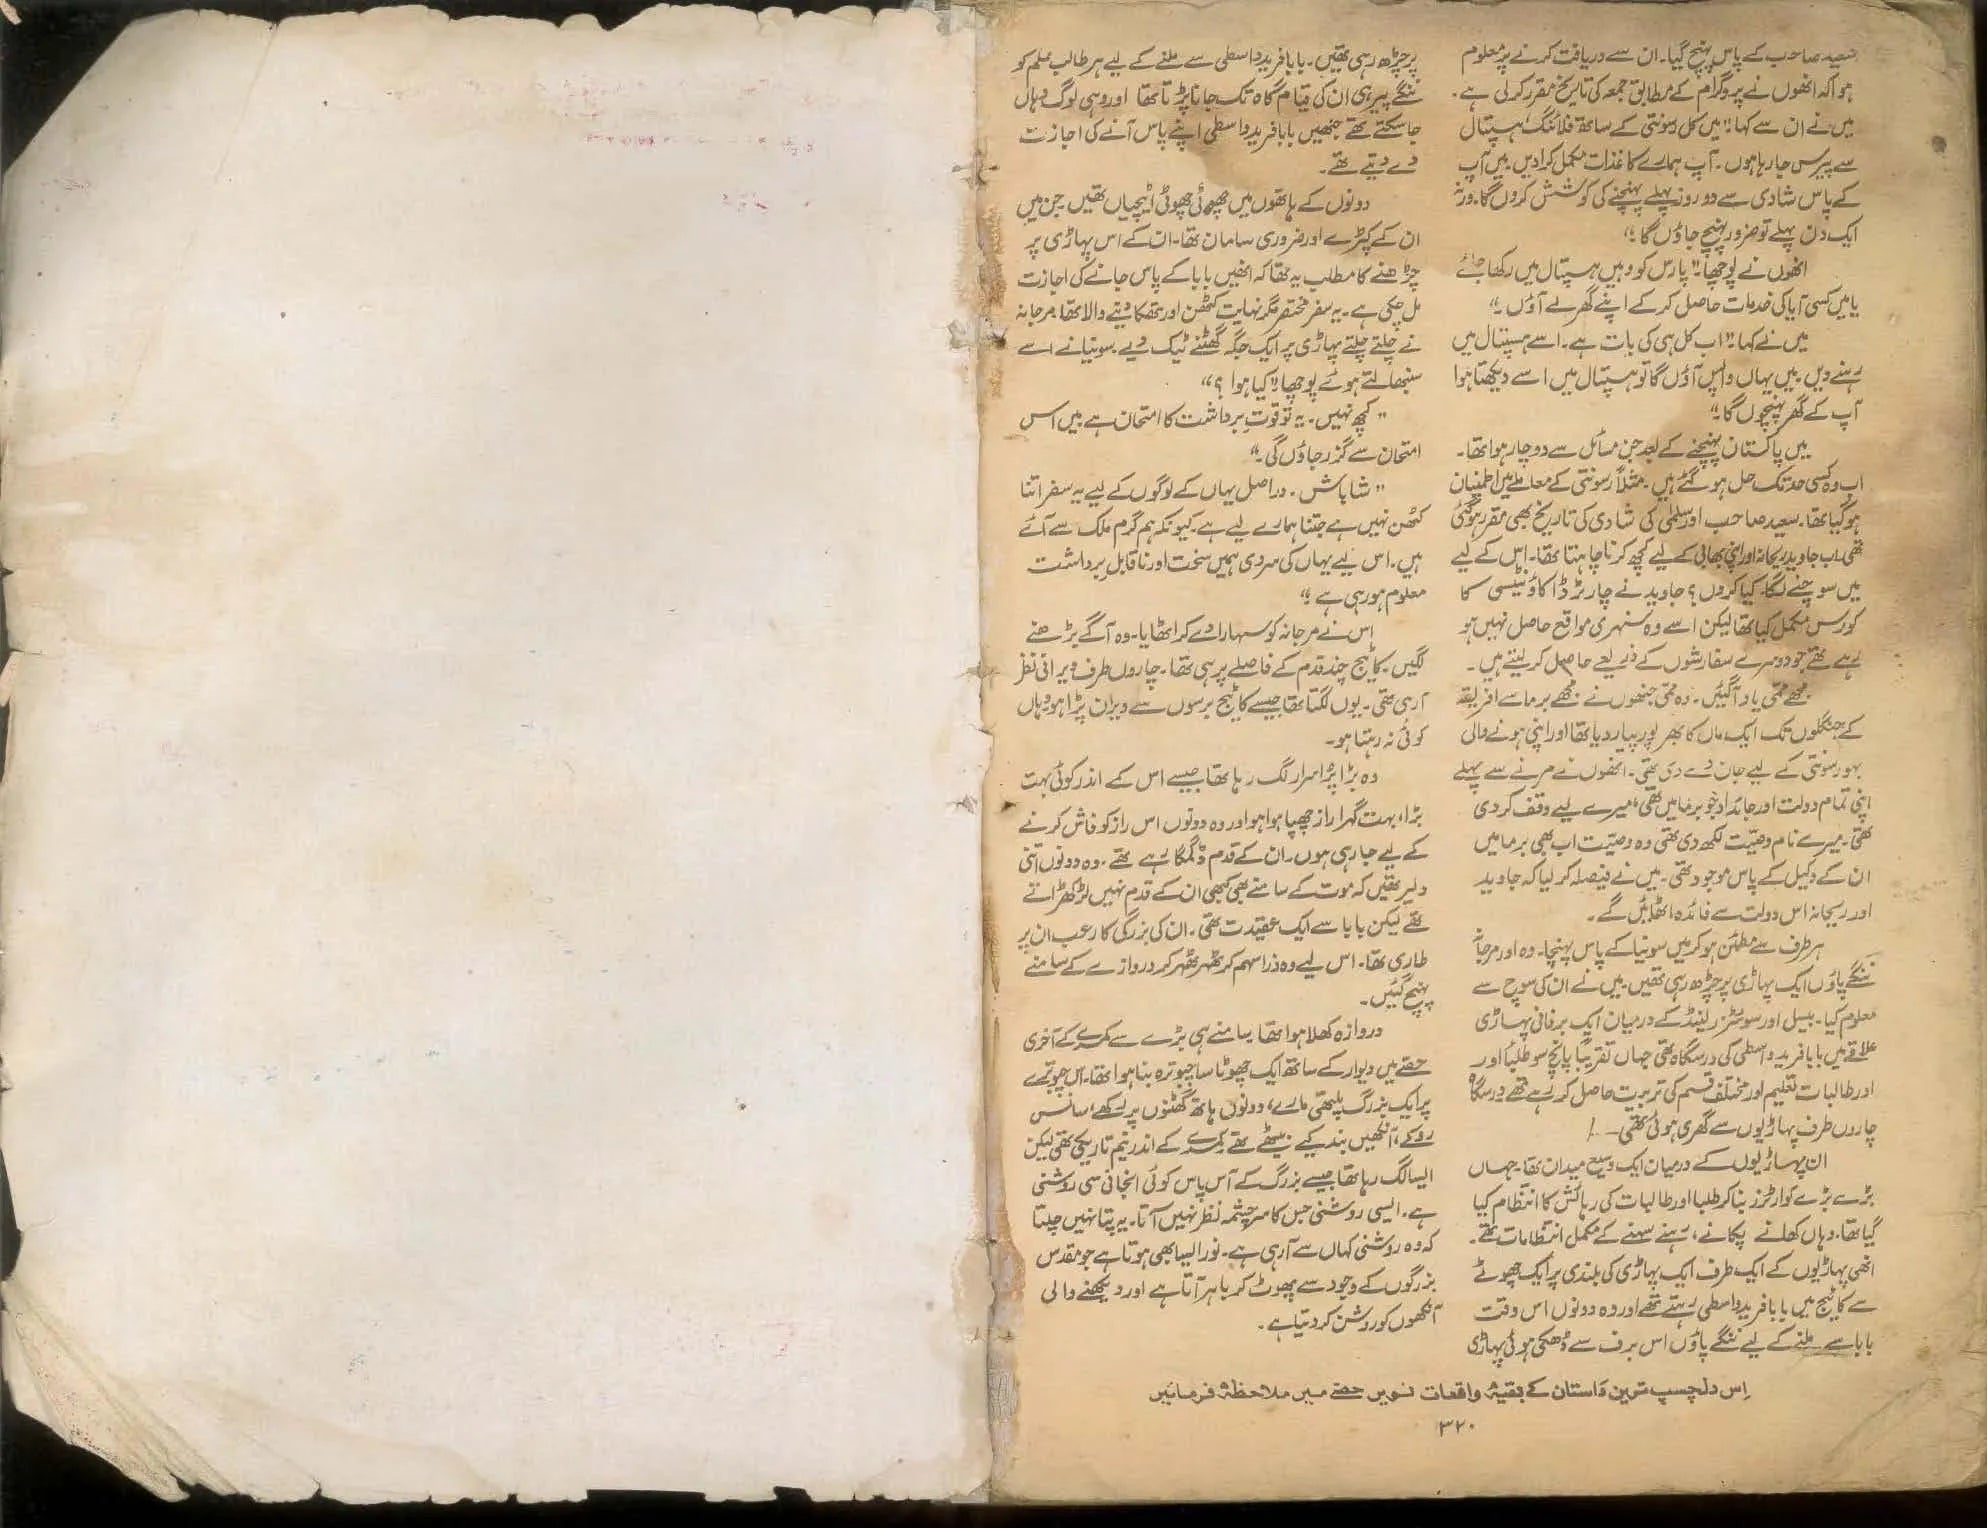 سعید صاحب کے پاس پہنچ گیا۔ ان سے دریافت کرنے پر معلوم
ہوا کہ انھوں نے پروگرام کے مطابق جمعہ کی تاریخ مقرر کر لی ہے۔
میں نے ان سے کہا "میں کل رسونتی کے ساتھ فلائنگ ہسپتال
سے پیرس جا رہا ہوں۔ آپ ہمارے کاغذات مکمل کرا دیں۔ میں آپ
کے پاس شادی سے دو روز پہلے پہنچنے کی کوشش کروں گا۔ ورنہ
ایک دن پہلے تو ضرور پہنچ جاؤں گا۔"
انھوں نے پوچھا۔ "پارس کو وہیں ہسپتال میں رکھا جائے
یا میں کسی آیا کی خدمات حاصل کر کے اپنے گھر لے آؤں۔"
میں نے کہا۔ "اب کل ہی کی بات ہے۔ اسے ہسپتال میں
رہنے دیں۔ میں یہاں واپس آؤں گا تو ہسپتال میں اسے دیکھتا ہوا
آپ کے گھر پہنچوں گا۔"
میں پاکستان پہنچنے کے بعد جن مسائل سے دوچار ہوا تھا۔
اب وہ کسی حد تک حل ہو گئے ہیں۔ مثلاً رسونتی کے معاملے میں اطمینان
ہو گیا تھا۔ سعید صاحب اور سلمٰی کی شادی کی تاریخ بھی مقرر ہو گئی
تھی۔ اب جاوید، ریحانہ اور اپنی بھابی کے لیے کچھ کرنا چاہتا تھا۔ اس کے لیے
میں سوچنے لگا۔ کیا کروں؟ جاوید نے چارٹرڈ اکاؤنٹینسی کا
کورس مکمل کیا تھا لیکن اسے وہ سنہری مواقع حاصل نہیں ہو
رہے تھے جو دوسرے سفارشوں کے ذریعے حاصل کر لیتے ہیں۔
مجھے ممی یاد آ گئیں۔ وہ ممی جنھوں نے مجھے برما سے افریقہ
کے جنگلوں تک ایک ماں کا بھرپور پیار دیا تھا اور اپنی ہونے والی
بہو رسونتی کے لیے جان دے دی تھی۔ انھوں نے مرنے سے پہلے
اپنی تمام دولت اور جائداد جو برما میں تھی، میرے لیے وقف کر دی
تھی۔ میرے نام وصیّت لکھ دی تھی وہ وصیّت اب بھی برما میں
ان کے وکیل کے پاس موجود تھی۔ میں نے فیصلہ کر لیا کہ جاوید
اور ریحانہ اس دولت سے فائدہ اٹھائیں گے۔
ہر طرف سے مطمئن ہو کر میں سونیا کے پاس پہنچا۔ وہ اور مرجانہ
ننگے پاؤں ایک پہاڑی پر چڑھ رہی تھیں۔ میں نے ان کی سوچ سے
معلوم کیا۔ بیسل اور سوئٹزرلینڈ کے درمیان ایک برفانی پہاڑی
علاقے میں بابا فرید واسطی کی درسگاہ تھی جہاں تقریباً پانچ سو طلبا اور
اور طالبات تعلیم اور مختلف قسم کی تربیت حاصل کر رہے تھے درسگاہ
چاروں طرف پہاڑیوں سے گھری ہوئی تھی۔
ان پہاڑیوں کے درمیان ایک وسیع میدان تھا۔ جہاں
بڑے بڑے کوارٹرز بنا کر طلبا اور طالبات کی رہائش کا انتظام کیا
گیا تھا۔ وہاں کھانے پکانے، رہنے سہنے کے مکمل انتظامات تھے۔
انھی پہاڑیوں کے ایک طرف ایک پہاڑی کی بلندی پر ایک چھوٹے
سے کاٹیج میں بابا فرید واسطی رہتے تھے اور وہ دونوں اس وقت
بابا سے ملنے کے لیے ننگے پاؤں اس برف سے ڈھکی ہوئی پہاڑی
پر چڑھ رہی تھیں۔ بابا فرید واسطی سے ملنے کے لیے ہر طالب علم کو
ننگے پیر ہی ان کی قیام گاہ تک جانا پڑتا تھا اور وہی لوگ وہاں
جا سکتے تھے جنھیں بابا فرید واسطی اپنے پاس آنے کی اجازت
دے دیتے تھے۔
دونوں کے ہاتھوں میں چھوٹی چھوٹی اٹیچیاں تھیں۔ جن میں
ان کے کپڑے اور ضروری سامان تھا۔ ان کے اس پہاڑی پر
چڑھنے کا مطلب یہ تھا کہ انھیں بابا کے پاس جانے کی اجازت
مل چکی ہے۔ یہ سفر مختصر مگر نہایت کٹھن اور تھکا دینے والا تھا۔ مرجانہ
نے چلتے چلتے پہاڑی پر ایک جگہ گھٹنے ٹیک دیے۔ سونیا نے اسے
سنبھالتے ہوئے پوچھا "کیا ہوا؟"
"کچھ نہیں۔ یہ تو قوتِ برداشت کا امتحان ہے میں اس
امتحان سے گزر جاؤں گی۔"
"شاباش۔ دراصل یہاں کے لوگوں کے لیے یہ سفر اتنا
کٹھن نہیں ہے جتنا ہمارے لیے ہے۔ کیونکہ ہم گرم ملک سے آئے
ہیں۔ اس لیے یہاں کی سردی ہمیں سخت اور ناقابلِ برداشت
معلوم ہو رہی ہے۔"
اس نے مرجانہ کو سہارا دے کر اٹھایا۔ وہ آگے بڑھنے
لگیں۔ کاٹیج چند قدم کے فاصلے پر ہی تھا۔ چاروں طرف ویرانی نظر
آ رہی تھی۔ یوں لگتا تھا جیسے کاٹیج برسوں سے ویران پڑا ہو وہاں
کوئی نہ رہتا ہو۔
وہ بڑا پُراسرار لگ رہا تھا جیسے اس کے اندر کوئی بہت
بڑا، بہت گہرا راز چھپا ہوا ہو اور وہ دونوں اس راز کو فاش کرنے
کے لیے جا رہی ہوں۔ ان کے قدم ڈگمگا رہے تھے۔ وہ دونوں اتنی
دلیر تھیں کہ موت کے سامنے بھی کبھی ان کے قدم نہیں لڑکھڑاتے
تھے لیکن بابا سے ایک عقیدت تھی۔ ان کی بزرگی کا رعب ان پر
طاری تھا۔ اس لیے وہ ذرا سہم کر ٹھہر ٹھہر کر دروازے کے سامنے
پہنچ گئیں۔
دروازہ کھلا ہوا تھا۔ سامنے ہی بڑے سے کمرے کے آخری
حصے میں دیوار کے ساتھ ایک چھوٹا سا چبوترہ بنا ہوا تھا۔ اس چبوترے
پر ایک بزرگ پلتھی مارے، دونوں ہاتھ گھٹنوں پر رکھے، سانس
روکے، آنکھیں بند کیے بیٹھے تھے کمرے کے اندر نیم تاریکی تھی لیکن
ایسا لگ رہا تھا جیسے بزرگ کے آس پاس کوئی انجانی سی روشنی
ہے۔ ایسی روشنی جس کا سرچشمہ نظر نہیں آتا۔ یہ پتا نہیں چلتا
کہ وہ روشنی کہاں سے آ رہی ہے۔ نور ایسا بھی ہوتا ہے جو مقدس
بزرگوں کے وجود سے پھوٹ کر باہر آتا ہے اور دیکھنے والی
آنکھوں کو روشن کر دیتا ہے۔
اِس دلچسپ ترین داستان کے بقیہ واقعات نویں حصے میں ملاحظہ فرمائیں
۳۲۰